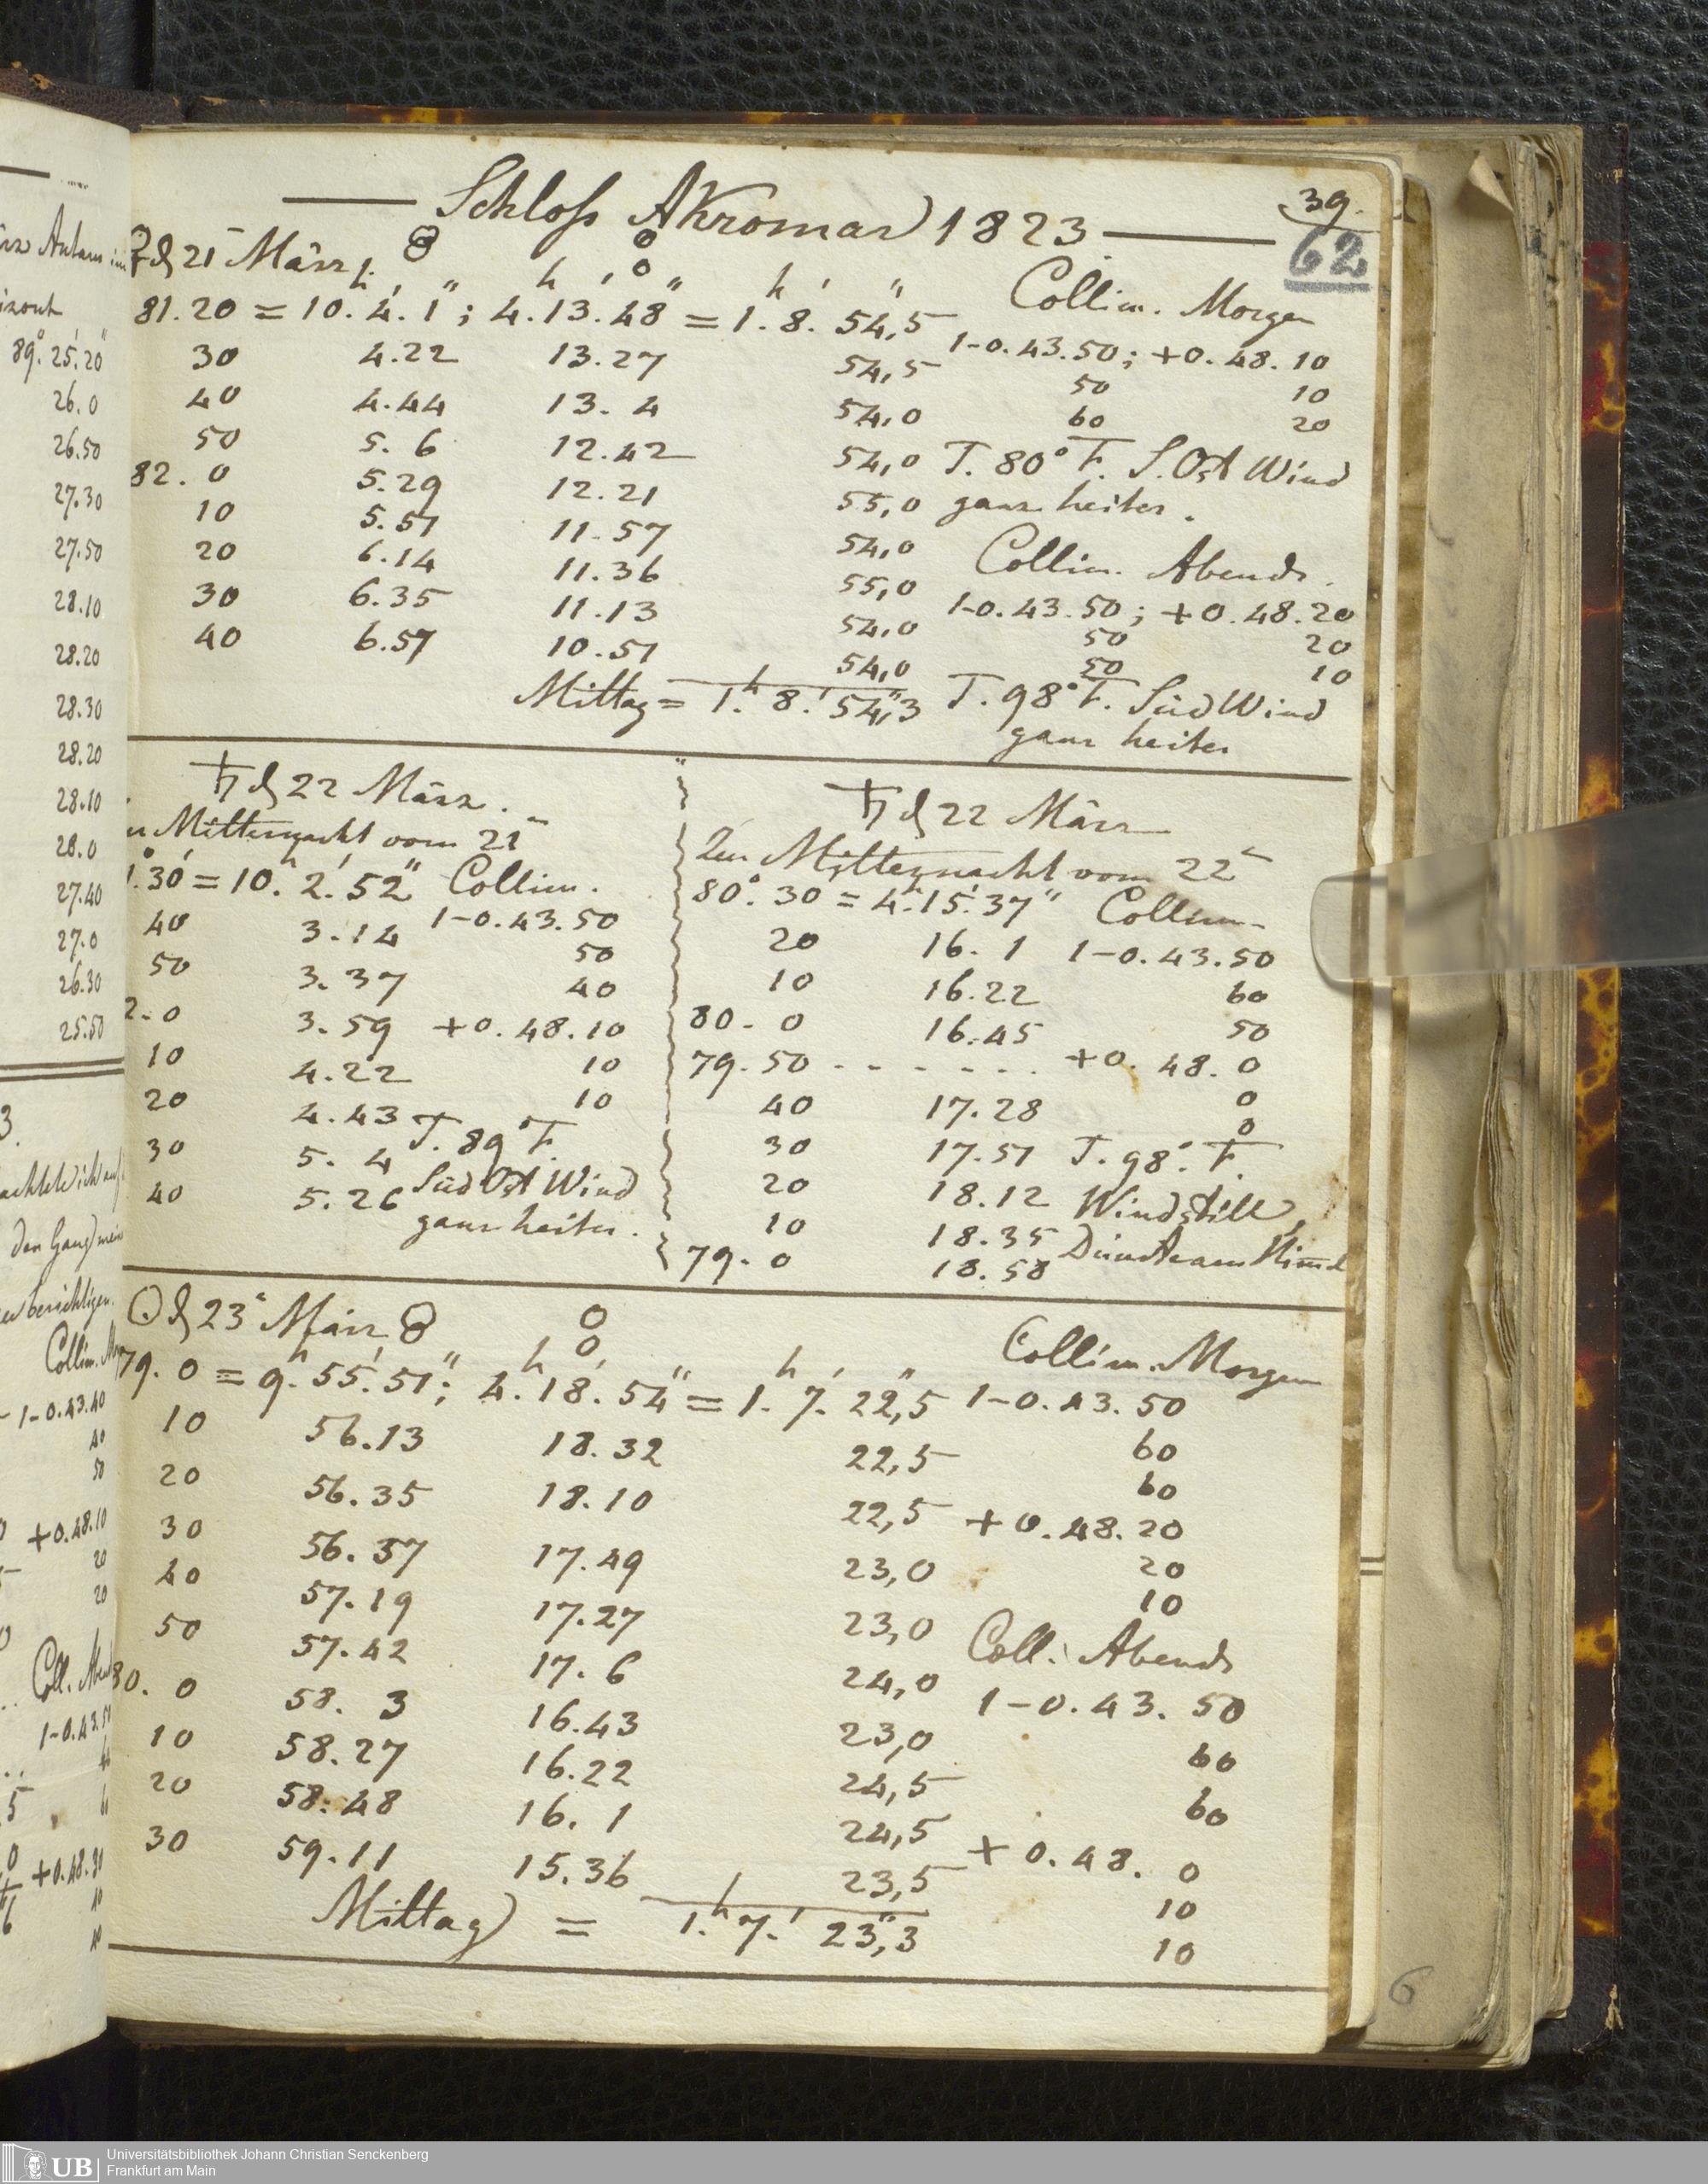 Schloß Akromar 1823
39.
62
♀ d 21 März
81.20 = 10.4.1; 4.13.48 = 1.8.54,5
30 4.22 13.27 54,5
40 4.44 13.4 54,0
50 5.6 12.42 54,0
82.0 5.29 12.21 55,0
10 5.51 11.57 54,0
20 6.14 11.36 55,0
30 6.35 11.13 54,0
40 6.57 10.51 54,0
Mittag = 1.h 8.' 54,"3
Collim. Morgen
1-0.43.50; +0.48.10
50 10
60 20
T. 80° F. S.Ost Wind
ganz heiter.
Collim. Abends.
1-0.43.50; +0.48.20
50 20
50 10
T. 98° F. Süd Wind
ganz heiter
♄ d 22 März.
Mitternacht vom 21
1.°30' = 10.h 2.' 52" Collim.
40 3.14 1-0.43.50
50 3.37 50
2.0 3.59 40
10 4.22 +0.48.10
20 4.43 10
30 5.4 10
40 5.26
T. 89° F.
Süd Ost Wind
ganz heiter.
♄ d 22 März
Zur Mitternacht vom 22
80.°30 = 4.h 15.' 37" Collim.
20 16.1 1-0.43.50
10 16.22 60
80.0 16.45 50
79.50 - - - - - - +0.48.0
40 17.28 0
30 17.51 0
20 18.12
10 18.35
79.0 18.58
T. 98.° F.
Windstill,
Dünste am Himel
☉ d 23 März
79.0 = 9.h 55.' 51"; 4.h 18.' 54" = 1.h 7.' 22",5
10 56.13 18.32 22,5
20 56.35 18.10 22,5
30 56.57 17.49 23,0
40 57.19 17.27 23,0
50 57.42 17.6 24,0
80.0 58.3 16.43 23,0
10 58.27 16.22 24,5
20 58.48 16.1 24,5
30 59.11 15.36 23,5
Mittag = 1.h 7.' 23,"3
Collim. Morgen
1-0.43.50
60
60
+0.48.20
20
10
Coll. Abends
1-0.43.50
60
60
+0.48.0
10
10
89.°25.'20"
26.0
26.50
27.30
27.50
28.10
28.20
28.30
28.20
28.10
28.0
27.40
27.0
26.30
25.50
berichtigen.
1-0.43.40
40
50
+0.48.10
20
20
6
UB
Universitätsbibliothek Johann Christian Senckenberg
Frankfurt am Main